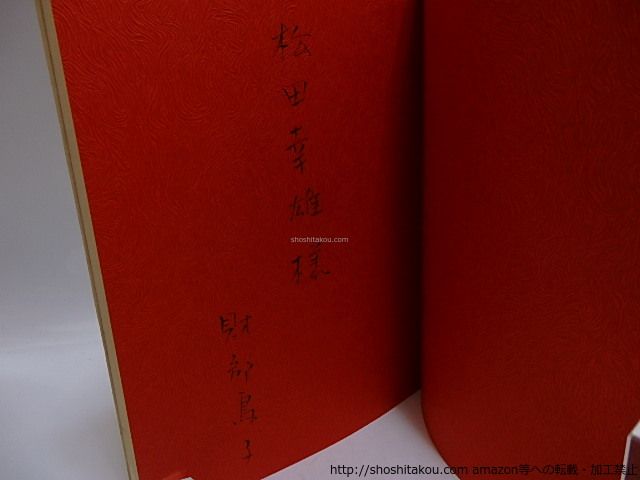 松田幸雄様
財部鳥子
shoshitakou.com
http://shoshitakou.com amazon等への転載・加工禁止